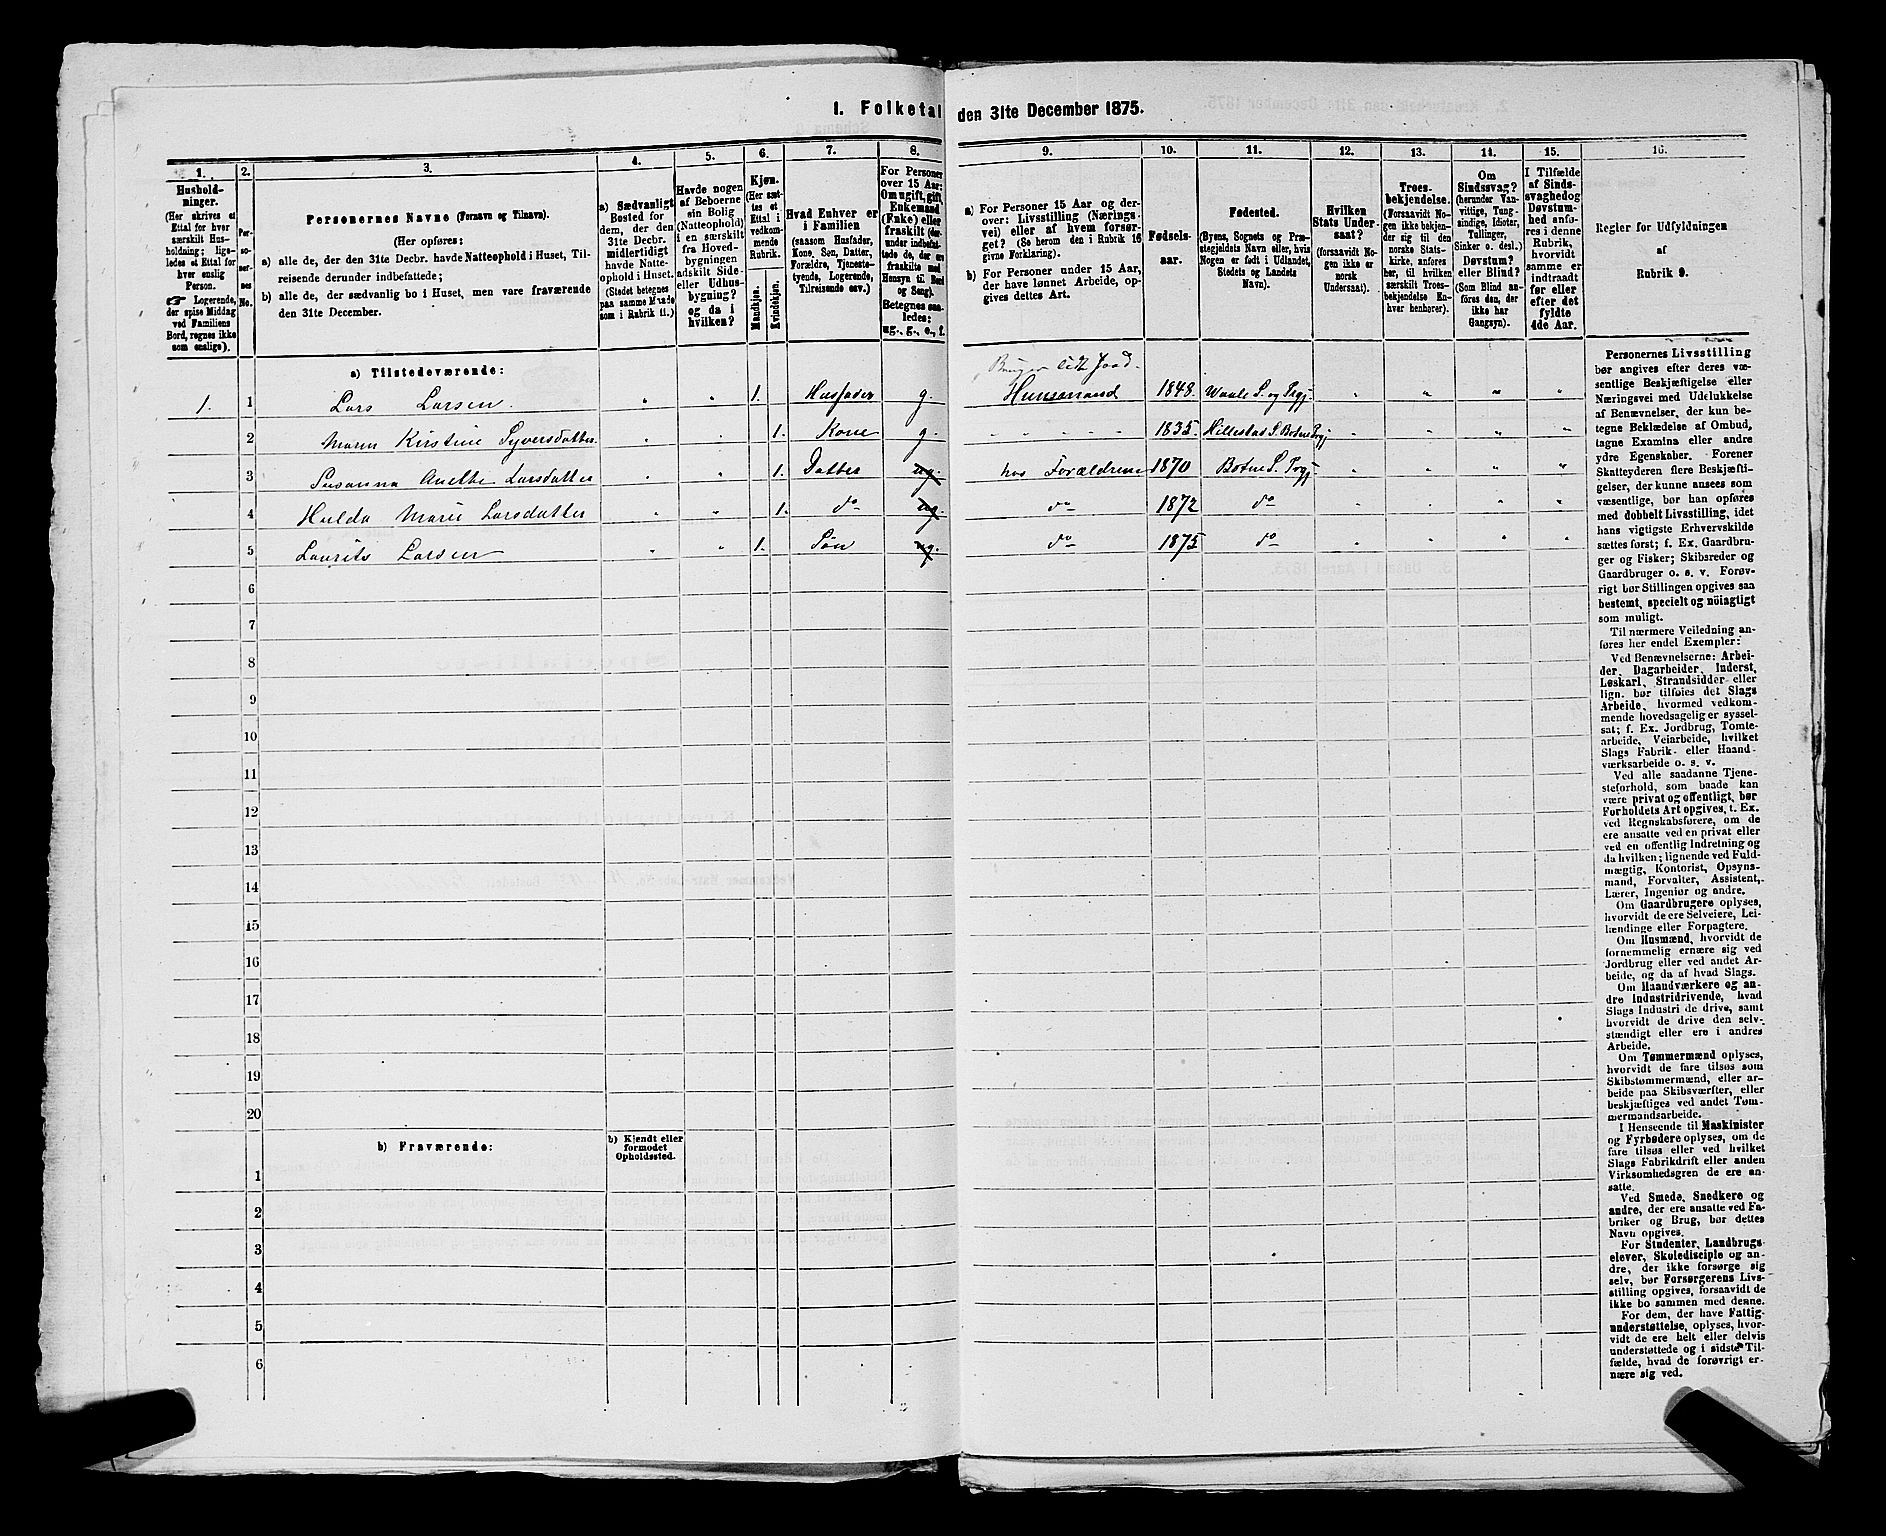 I. Folketal den 31te December 1875.
1.
Hushold-
ninger.
(Her skrives et
Ettal for hver
særskilt Hus-
holdning; lige-
ledes et Ettal for
hver enslig
Person.
☞ Logerende,
der spise Middag
ved Familiens
Bord, regnes ikke
som enslige).
2.
Per-
so-
ner-
nes
No.
3.
Personernes Navne (Fornavn og Tilnavn).
(Her opføres:
a) alle de, der den 31te Decbr. havde Natteophold i Huset, Til-
reisende derunder indbefattede;
b) alle de, der sædvanlig bo i Huset, men vare fraværende
den 31te December.
4.
a) Sædvanligt
Bosted for
dem, der den
31te Decbr.
midlertidigt
havde Natte-
ophold i Huset.
(Stedet betegnes
paa samme Maade
som i Rubrik 11.)
5.
Havde nogen
af Beboerne
sin Bolig
(Natteophold)
i en særskilt
fra Hoved-
bygningen
adskilt Side-
eller Udhus-
bygning?
og da i
hvilken?
6.
Kjøn.
(Her sæt-
tes et
Ettal i
vedkom-
mende
Rubrik.
Mandkjøn.
Kvindekjøn.
7.
Hvad Enhver er
i Familien
(saasom Husfader,
Kone, Søn, Datter,
Forældre, Tjeneste-
tyende, Logerende,
Tilreisende osv.)
8.
For Personer
over 15 Aar:
Om ugift, gift,
Enkemand
(Enke) eller
fraskilt (der-
under indbefat-
tede de, der ere
fraskilte med
Hensyn til Bord
og Seng).
Betegnes saa-
ledes:
ug., g., e., f.
9.
a) For Personer 15 Aar og der-
over: Livsstilling (Nærings
vei) eller af hvem forsør-
get? (Se herom den i Rubrik 16
givne Forklaring).
b) For Personer under 15 Aar,
der have lønnet Arbeide, op-
gives dettes Art.
10.
Fødsels-
aar.
11.
Fødested.
(Byens, Sognets og Præ-
stegjeldets Navn eller, hvis
Nogen er født i Udlandet,
Stedets og Landets
Navn).
12.
Hvilken
Stats Under-
saat?
(forsaavidt No-
gen ikke er
norsk
Undersaat).
13.
Troes-
bekjendelse.
(Forsaavidt No-
gen ikke bekjen-
der sig til den
norske Stats-
kirke, anføres
her, til hvilken
særskilt Troes-
bekjendelse En-
hver henhører).
14.
Om
Sindssvag?
(herunder Van-
vittige, Tung-
sindige, Idioter,
Tullinger,
Sinker o. desl.)
Døvstum?
eller Blind?
(Som Blind an-
føres den, der
ikke har
Gangsyn).
15.
I Tilfælde
af Sinds-
svaghed og
Døvstum-
hed anfø-
res i denne
Rubrik,
hvorvidt
samme er
indtraadt
før eller
efter det
fyldte
4de Aar.
16.
Regler for Udfyldningen
af
Rubrik 9.
a) Tilstedeværende:
Bruger lidt Jord.
1. 1 Lars Larsen. " " 1. Husfader g. Husmand 1848. Waale S. og Prgj. " " " "
2 Maren Kirstine Syversdatter " " 1. Kone g. " " " " " 1835. Hillestad S. Botne Prgj " " " "
3 Susanna Anette Larsdatter " " 1. Datter ug. hos Forældrene 1870 Botne S. Prgj " " " "
4 Hulda Marie Larsdatter " " 1. do ug. do 1872 do " " " "
5 Laurits Larsen " " 1. Søn ug. do 1875 do " " " "
6
7
8
9
10
11
12
13
14
15
16
17
18
19
20
b) Fraværende:
b) Kjendt eller
formodet
Opholdssted.
1
2
3
4
5
6
Personernes Livsstilling
bør angives efter deres væ-
sentlige Beskjæftigelse eller
Næringsvei med Udelukkelse
af Benævnelser, der kun be-
tegne Beklædelse af Ombud,
tagne Examina eller andre
ydre Egenskaber. Forener
Skatteyderen flere Beskjæfti-
gelser, der kunne ansees som
væsentlige, bør han opføres
med dobbelt Livsstilling, idet
hans vigtigste Erhvervskilde
sættes først; f. Ex. Gaardbru-
ger og Fisker; Skibsreder og
Gaardbruger o. s. v. Forøv-
rigt bør Stillingen opgives saa
bestemt, specielt og nøiagtigt
som muligt.
Til nærmere Veiledning an-
føres her endel Exempler:
Ved Benævnelserne: Arbei-
der, Dagarbeider, Inderst,
Løskarl, Strandsidder eller
lign. bør tilføies det Slags
Arbeide, hvormed vedkom-
mende hovedsagelig er syssel-
sat; f. Ex. Jordbrug, Tomte-
arbeide, Veiarbeide, hvilket
Slags Fabrik- eller Haand-
værksarbeide o. s. v.
Ved alle saadanne Tjene-
steforhold, som baade kan
være privat og offentligt, bør
Forholdets Art opgives, t. Ex.
ved Regnskabsførere, om de
ere ansatte ved en privat eller
ved en offentlig Indretning og
da hvilken; lignende ved Fuld-
mægtig, Kontorist, Opsyns-
mand, Forvalter, Assistent,
Lærer, Ingeniør og andre.
Om Gaardbrugere oplyses,
hvorvidt de ere Selveiere, Lei-
lændinge eller Forpagtere.
Om Husmænd, hvorvidt de
fornemmelig ernære sig ved
Jordbrug eller ved andet Ar-
beide, og da af hvad Slags.
Om Haandværkere og an-
dre Industridrivende, hvad
Slags Industri de drive, samt
hvorvidt de drive den selv-
stændigt eller ere i andres
Arbeide.
Om Tømmermænd oplyses,
hvorvidt de fare tilsøs som
Skibstømmermænd, eller ar-
beide paa Skibsværfter, eller
beskjæftiges ved andet Tøm-
mermandsarbeide.
I Henseende til Maskinister
og Fyrbødere oplyses, om de
fare tilsøs eller ved hvilket
Slags Fabrikdrift eller anden
Virksomhedsgren de ere an-
satte.
Ved Smede, Snedkere og
andre, der ere ansatte ved Fa-
briker og Brug, bør dettes
Navn opgives.
For Studenter, Landbrugs-
elever, Skoledisciple og an-
dre, der ikke forsørge sig
selv, bør Forsørgerens Livs-
stilling opgives, forsaavidt de
ikke bo sammen med denne.
For dem, der have Fattig-
understøttelse, oplyses, hvor-
vidt de ere helt eller delvis
understøttede og i sidste Til-
fælde, hvad de forøvrigt er-
nære sig ved.